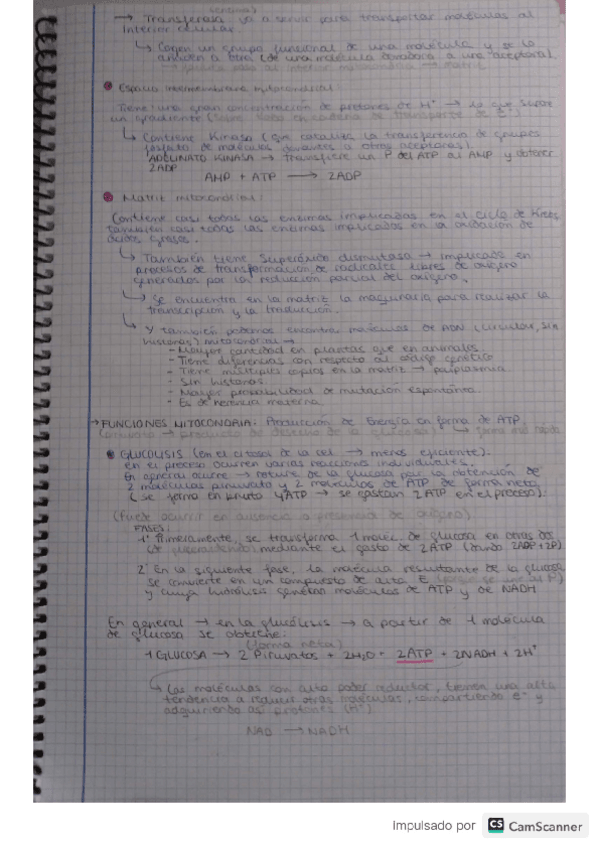 → Transferasa va a servir para transportar moléculas al
interior celular.
↳ Cogen un grupo funcional de una molécula y se lo
a otra (de una molécula donadora a una aceptora).
• Espacio intermembrana mitocondrial:
Tiene una gran concentración de protones de H⁺ → lo que
un gradiente
↳ Contiene Kinasa (que cataliza la transferencia de grupos
fosfato de moléculas donantes a otras aceptoras).
ADELINATO KINASA → transfiere un P del ATP al AMP y obtener
2ADP
AMP + ATP → 2ADP
• Matriz mitocondrial:
Contiene casi todas las enzimas implicadas en el ciclo de Krebs,
también casi todas las enzimas implicadas en la oxidación de
ácidos grasos.
↳ También tiene Superóxido dismutasa → implicada en
procesos de transformación de radicales libres de oxígeno
generados por la reducción parcial del oxígeno.
↳ Se encuentra en la matriz la maquinaria para realizar la
transcripción y la traducción.
↳ Y también podemos encontrar moléculas de ADN (circular, sin
histonas) mitocondrial →
- Mayor cantidad en plantas que en animales.
- Tiene diferencias con respecto al código genético
- Tiene múltiples copias en la matriz →
- Sin histonas.
- Mayor probabilidad de mutación espontánea.
- Es de herencia materna.
→ FUNCIONES MITOCONDRIA: Producción de Energía en forma de ATP
• GLUCOLISIS (en el citosol de la cel. → menos eficiente).
en el proceso ocurren varias reacciones individuales.
En general ocurre → rotura de la glucosa por la obtención de
2 moléculas piruvato y 2 moléculas de ATP de forma neta
(se forma en bruto 4ATP → se gastan 2ATP en el proceso).
(Puede ocurrir en ausencia o presencia de oxígeno)
FASES:
1º Primeramente, se transforma 1 moléc. de glucosa en otras dos
(de gliceraldehído) mediante el gasto de 2ATP (dando 2ADP+2P).
2º En la siguiente fase, la molécula resultante de la glucosa
se convierte en un compuesto de alta E (porque se une al P)
y cuya hidrólisis genera moléculas de ATP y de NADH
En general → en la glucólisis → a partir de 1 molécula
de glucosa se obtiene:
(forma neta)
1 GLUCOSA → 2 Piruvatos + 2H₂O + 2ATP + 2NADH + 2H⁺
↳ Las moléculas con alto poder reductor, tienen una alta
tendencia a reducir otras moléculas, compartiendo e⁻ y
adquiriendo así protones (H⁺)
NAD → NADH
Impulsado por CS CamScanner